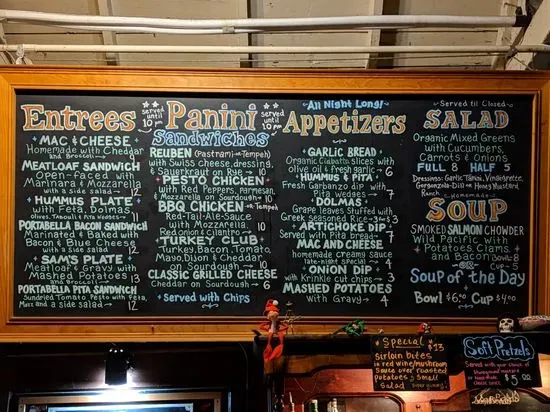 Entrees
** served until 10 pm
• MAC & CHEESE •
Homemade with Cheddar
and Broccoli 9
MEATLOAF SANDWICH
Open-Faced with
Marinara & Mozzarella
with a side salad 11
• HUMMUS PLATE •
with Feta, Dolmas 11
Olives, Tabouli & Pita Wedges
PORTABELLA BACON SANDWICH
Marinated & Baked with
Bacon & Blue Cheese
with a side salad 12
• SAM'S PLATE •
Meatloaf & Gravy with
Mashed Potatoes 13
and Broccoli
PORTABELLA PITA SANDWICH
Sundried Tomato Pesto with Feta,
and a side salad 12
Panini
Sandwiches
** served until 10 pm
REUBEN (Pastrami or Tempeh)
with Swiss cheese, dressing,
& Sauerkraut on Rye 10
• PESTO CHICKEN •
with Red Peppers, Parmesan,
& Mozzarella on Sourdough 10
BBQ CHICKEN or Tempeh
Red-Tail-Ale-Sauce
with Mozzarella,
Red onion & Cilantro 10
• TURKEY CLUB •
Turkey, Bacon, Tomato,
Mayo, Dijon & Cheddar
on Sourdough 10
CLASSIC GRILLED CHEESE
Cheddar on Sourdough 6
• Served with Chips
~All Night Long!~
Appetizers
• GARLIC BREAD •
Organic Ciabatta slices with
olive oil & fresh garlic 6
• HUMMUS & PITA •
Fresh garbanzo dip with
Pita wedges 7
• DOLMAS •
Grape leaves Stuffed with
Greek seasoned Rice
ARTICHOKE DIP
Served with Pita bread 7
MAC AND CHEESE
homemade Creamy Sauce
late-night special 4
• ONION DIP •
with Krinkle cut chips 3
MASHED POTATOES
with Gravy 4
~ Served til Closed ~
SALAD
Organic Mixed Greens
with Cucumbers,
Carrots & Onions
FULL 8 HALF 5
Dressings: Garlic Tahini, Vinaigrette,
Gorgonzola-Dill or Honey Mustard
Ranch
~ Homemade ~
SOUP
SMOKED SALMON CHOWDER
Wild Pacific with
Potatoes, Clams,
and Bacon Bowl 8
Cup 5
OR
Soup of the Day
Bowl $6.00 Cup $4.00
• Special $13
Sirloin bites
in red wine/mushroom
Sauce over roasted
potatoes & Small
Salad
Soft Pretzels
Served with your choice of
$5.00